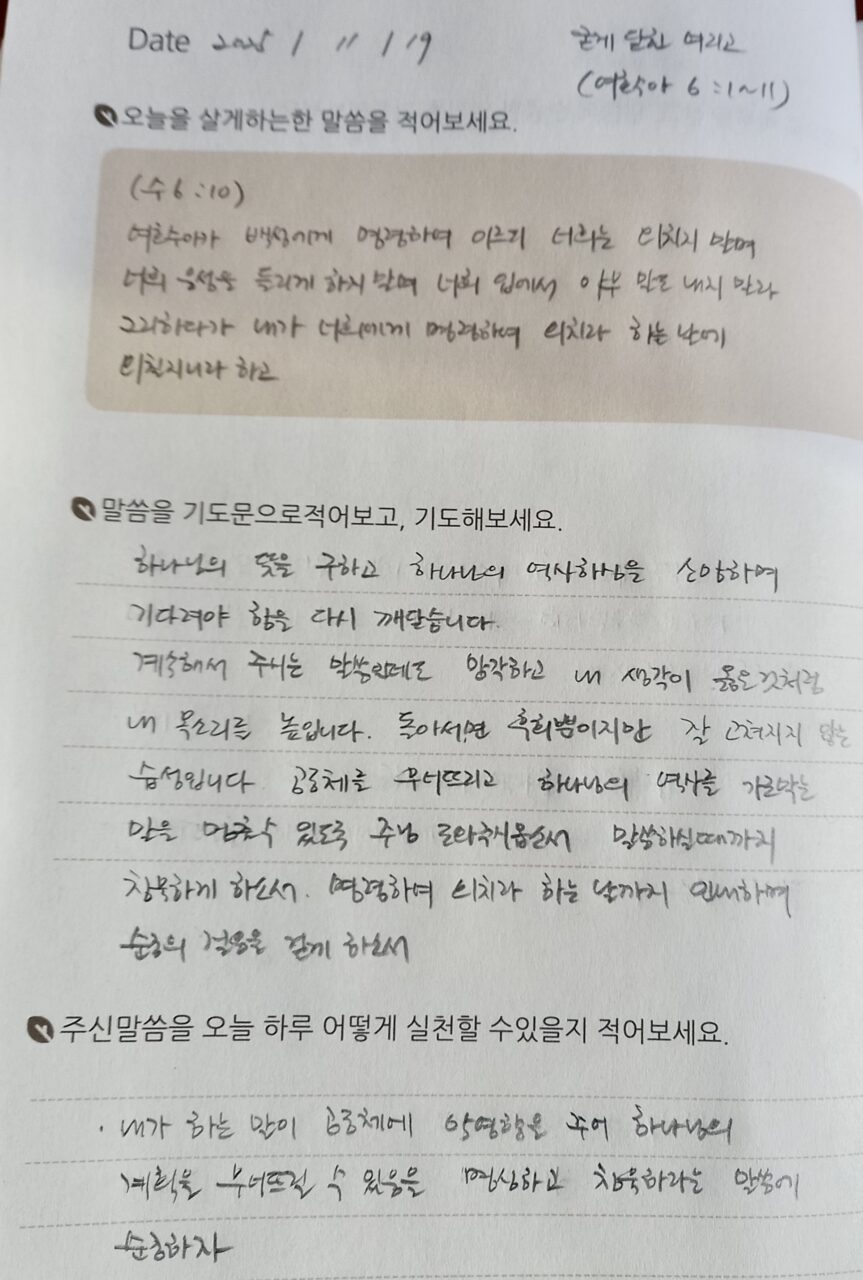 Date 2025 / 11 / 19
굳게 닫힌 여리고
(여호수아 6:1~11)
오늘을 살게하는한 말씀을 적어보세요.
(수 6:10)
여호수아가 백성에게 명령하여 이르되 너희는 외치지 말며
너희 음성을 들리게 하지 말며 너희 입에서 아무 말도 내지 말라
그리하다가 내가 너희에게 명령하여 외치라 하는 날에
외칠지니라 하고
말씀을 기도문으로적어보고, 기도해보세요.
하나님의 뜻을 구하고 하나님의 역사하심을 소망하며
기다려야 함을 다시 깨달습니다.
계속해서 주시는 말씀인데도 망각하고 내 생각이 옳은것처럼
내 목소리를 높입니다. 돌아서면 후회뿐이지만 잘 고쳐지지 않는
습성입니다. 공동체를 무너뜨리고 하나님의 역사를 가로막는
말을 멈출수 있도록 주님 도와주시옵소서 말씀하실때까지
침묵하게 하소서. 명령하여 외치라 하는 날까지 인내하며
순종의 걸음을 걷게 하소서
주신말씀을 오늘 하루 어떻게 실천할 수있을지 적어보세요.
· 내가 하는 말이 공동체에 악영향을 주어 하나님의
계획을 무너뜨릴 수 있음을 명심하고 침묵하라는 말씀에
순종하자